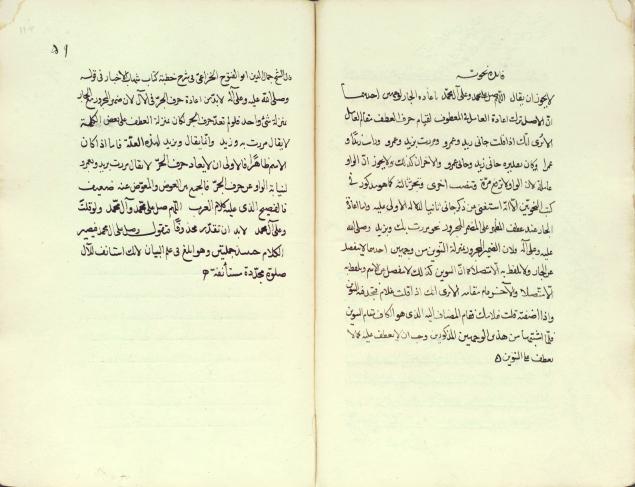 فائدة نحوية
لا يجوز ان يقال اللهم صل على محمد وعلى آل محمد باعادة الجار لوجهين احدهما
انّ الاصل ترك اعادة العامل في المعطوف لقيام حرف العطف مقام العامل
الا ترى انك اذا قلت جاءنى زيد وعمرو ومررت بزيد وعمرو ورايت زيدا و
عمرا وكان تقديره جاءنى زيد وجاءنى عمرو والاخران كذلك ولا يجوز انّ الواو
عاملة لانّ الواو لا ترفع مرّة وتنصب اخرى وتجرّ ثالثة كما هو مذكور في
كتب النحويين الا انه استغنى عن ذكر جاءنى ثانيا لدلالة الاولى عليه
الجار عند عطف المظهر على المضمر المجرور نحو مررت بك وبزيد وصلى الله
عليه وعلى آله فلان الضمير المجرور بمنزلة التنوين من وجهين احدهما لا ينفصل
عن الجار ولا يلفظ به الا متصلا به كما انّ التنوين كذلك لا ينفصل عن الاسم ولا يلفظ به
الا متصلا والآخر قام مقامه الا ترى انك اذا قلت غلام فتجد فيه التنوين
واذا اضفته قلت غلامك فقام المضاف اليه الذى هو الكاف مقام التنوين
فلمّا اشبه من هذين الوجهين المذكورين وجب ان لا يعطف عليه كما لا
يعطف على التنوين
٥٩
قال الشيخ جمال الدين ابو الفتوح الخزاعى فى شرح خطبة كتاب شهاب الاخبار فى قوله
وصلى الله عليه وعلى آله لا بدّ من اعادة حرف الجرّ فى الآل لان ضمير المجرور مع الجار
بمنزلة شئ واحد فلو لم تعد حرف الجر لكان بمنزلة العطف على بعض الكلمة
لا يقال مررت به وزيد وانّما يقال وبزيد لهذه العلّة فاما اذا كان
الاسم ظاهرًا فالاولى ان لا يعاد حرف الجرّ لا يقال مررت بزيد وبعمرو
لنيابة الواو عن حرف الجرّ فالجمع بين العوض والمعوّض عنه ضعيف
فالفصيح الذى عليه كلام العرب اللهم صل على محمد وآل محمد ولو قلت
وعلى آل محمد لابد ان تقدّر محذوفًا فتقول وصل على آل محمد فيصير
الكلام جملتين وهو ابلغ فى علم البيان لانك استأنفت للآل
صلوة مجدّدة مستأنفة